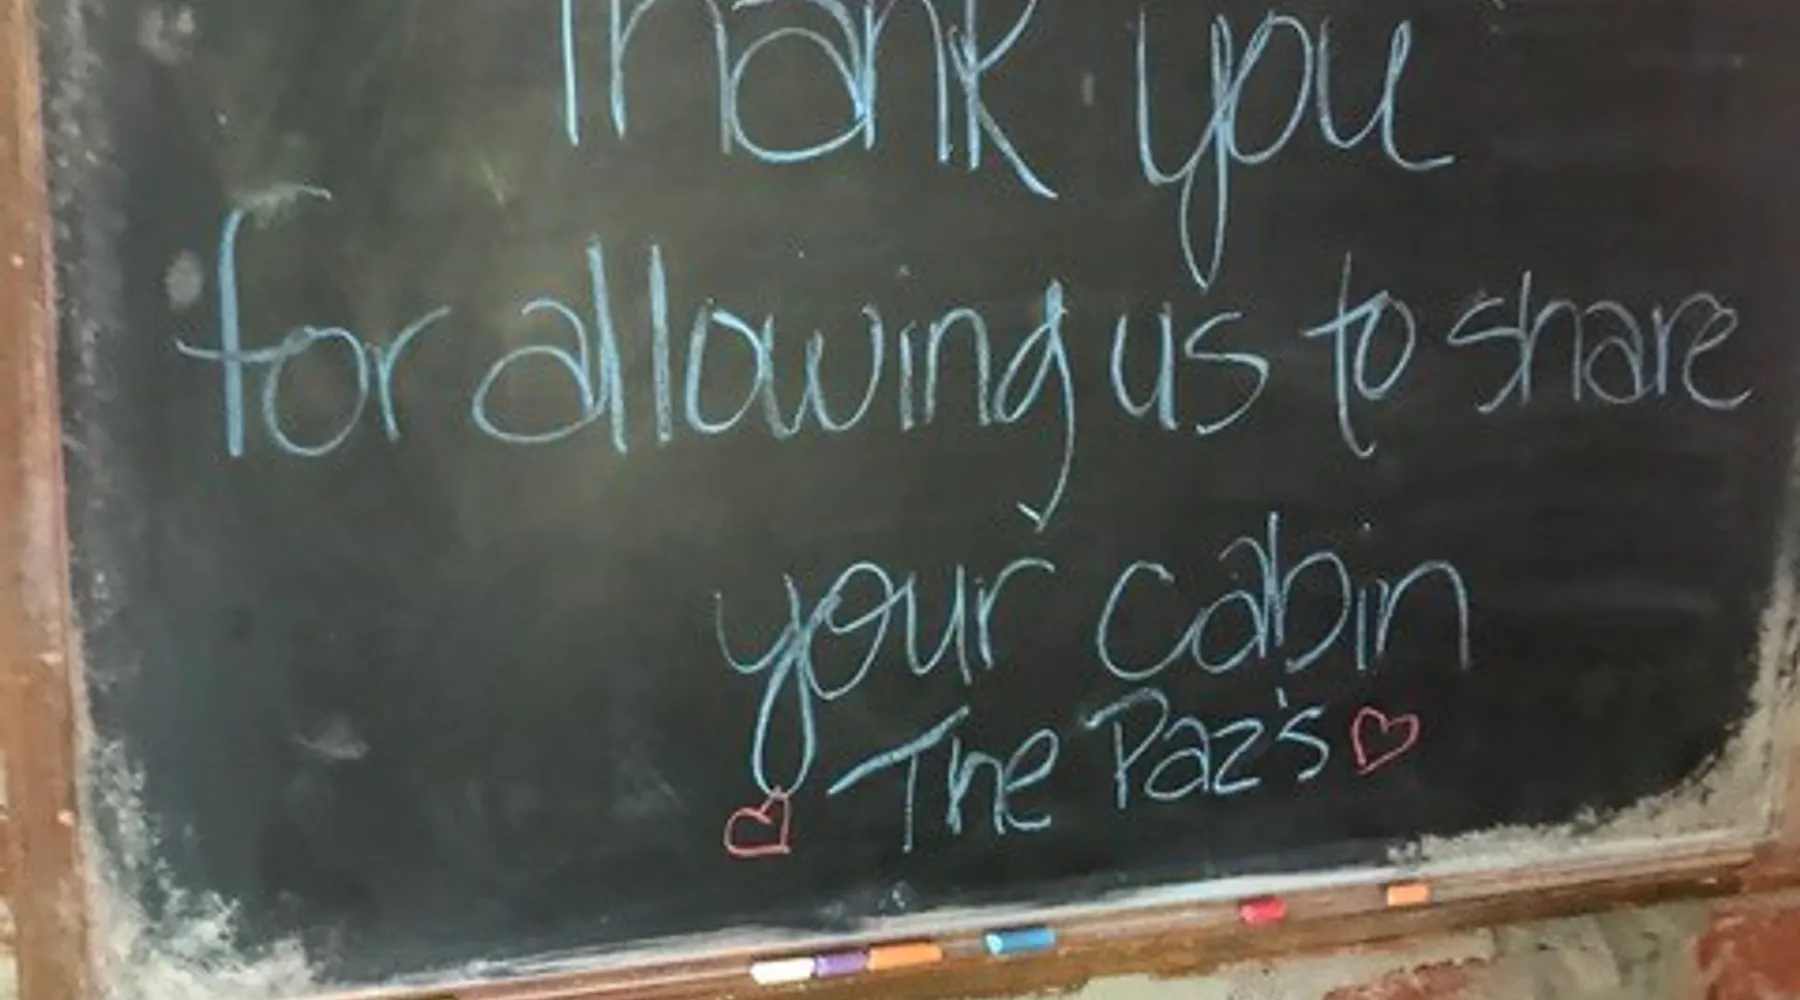 Thank you
for allowing us to share
your cabin
The Paz's